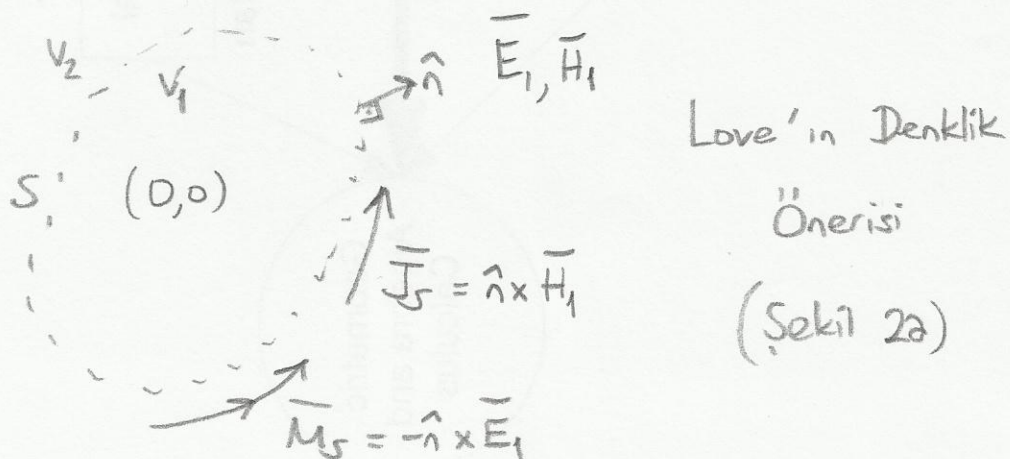 V₂
V₁
n̂
E̅₁, H̅₁
S
(0,0)
J̅ₛ = n̂ x H̅₁
M̅ₛ = -n̂ x E̅₁
Love'ın Denklik
Önerisi
(Şekil 2a)